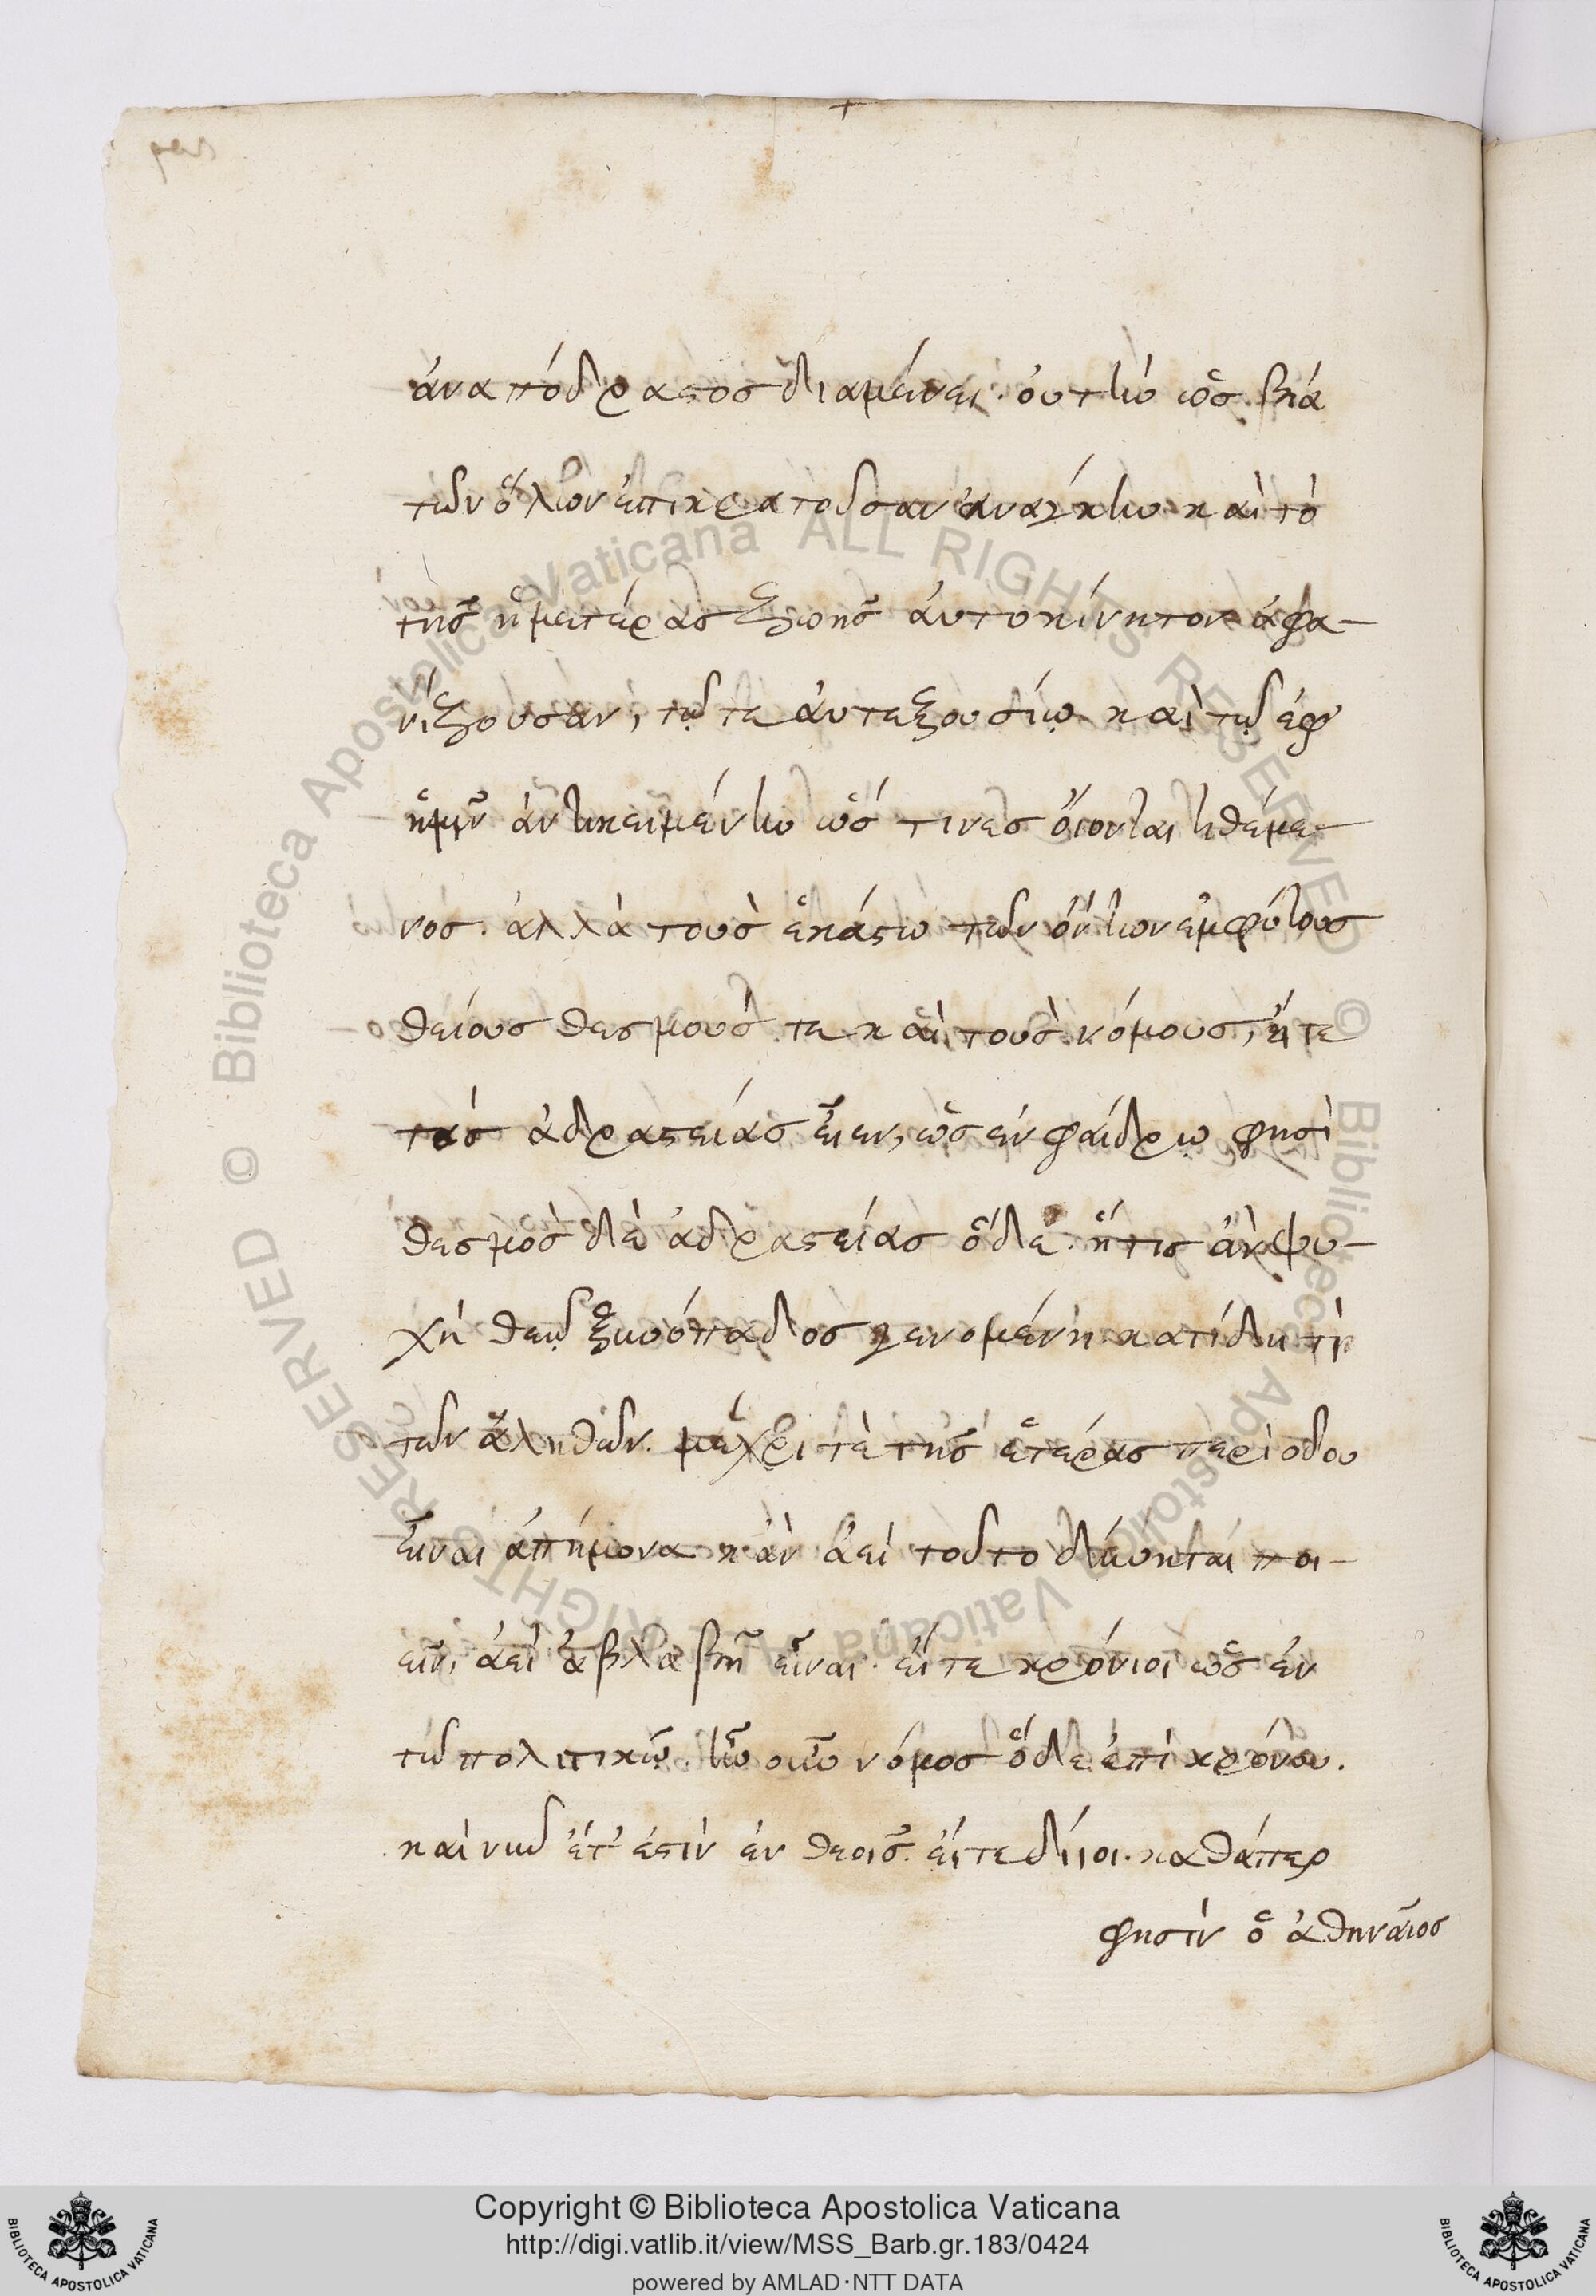 ἀναπόδραστος διαμένει. οὐ τὴν ὡς βία
τῶν ὅλων ἐπικρατοῦσαν ἀναγκην καὶ τὸ
τῆς ἡμετέρας ζωῆς ἀυτοκίνητον ἀφα-
νίζουσαν, τῷ τε ἀυτεξουσίῳ καὶ τῷ ἐφ'
ἡμῖν ἀντικειμένην ὥς τινες ὄιονται τιθέμε-
νος. ἀλλὰ τοὺς ἑκάστω τῶν ὄντων ἐμφύτους
θείους θεσμούς τε καὶ τοὺς νόμους, εἴτε
τῆς ἀδραστείας εἶεν, ὡς ἐν φαίδρῳ φησὶ
θεσμὸς δὲ ἀδραστείας ὅδε. ἥτις ἂν ψυ-
χὴ θεῷ ξυνόπαδος γενομένη κατίδη τὶ
τῶν ἀληθῶν. μέχρι τὲ τῆς ἑτέρας περιόδου
εἶναι ἀπήμονα. κἀν ἀεὶ τοῦτο δύνηται ποι-
εῖν, ἀεὶ ἀβλαβῆ εἶναι. εἴτε κρόνιοι ὡς ἐν
τῷ πολιτικῷ. ἦν οὖν νόμος ὅδε ἐπὶ κρόνου.
καὶ νῦν ἔτ' ἐστὶν ἐν θεοῖς. εἴτε δίιοι. καθάπερ
φησὶν ὁ ἀθηναῖος
Copyright © Biblioteca Apostolica Vaticana
http://digi.vatlib.it/view/MSS_Barb.gr.183/0424
powered by AMLAD·NTT DATA
BIBLIOTECA APOSTOLICA VATICANA
BIBLIOTECA APOSTOLICA VATICANA
© Biblioteca Apostolica Vaticana ALL RIGHTS RESERVED
© Biblioteca Apostolica Vaticana ALL RIGHTS RESERVED